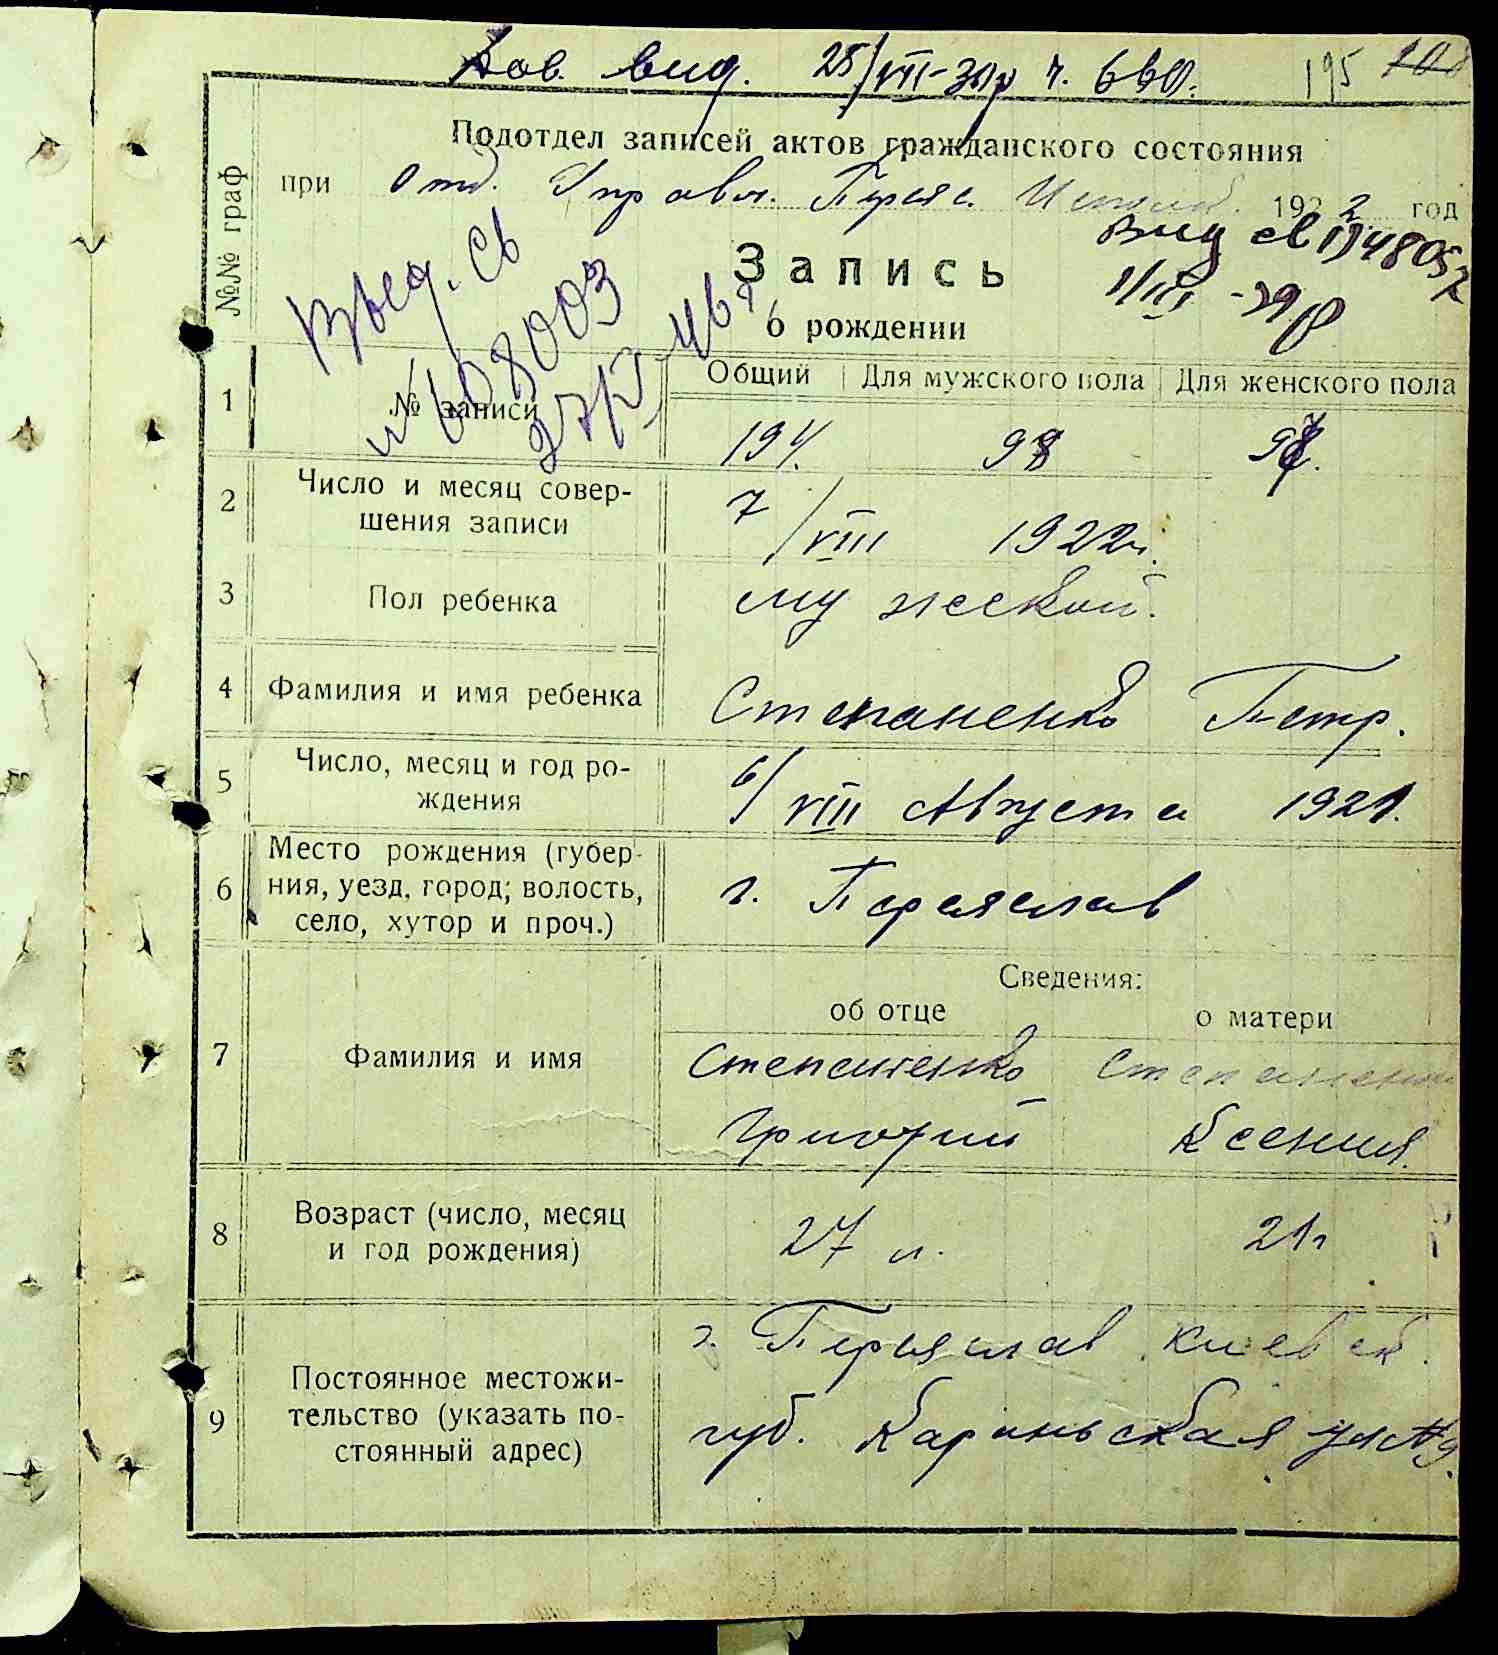 Дов. вид. 25/VII-30р ч. 660.
195
Подотдел записей актов гражданского состояния
при Отд. Управл. Переяс. 1922 год
№№ граф
Выд. Св
№ 608003
Запись
о рождении
1 № записи
Общий Для мужского пола Для женского пола
194. 98
2 Число и месяц совер-
шения записи
7/VIII 1922 г.
3 Пол ребенка
мужеской.
4 Фамилия и имя ребенка
Степаненко Петр.
5 Число, месяц и год ро-
ждения
6/VIII Августа 1921.
6 Место рождения (губер-
ния, уезд, город; волость,
село, хутор и проч.)
г. Переяслав
Сведения:
об отце о матери
7 Фамилия и имя
Степаненко Степаненко
Григорий Ксения.
8 Возраст (число, месяц
и год рождения)
27 л. 21 г
9 Постоянное местожи-
тельство (указать по-
стоянный адрес)
г. Переяслав Киевск.
губ.